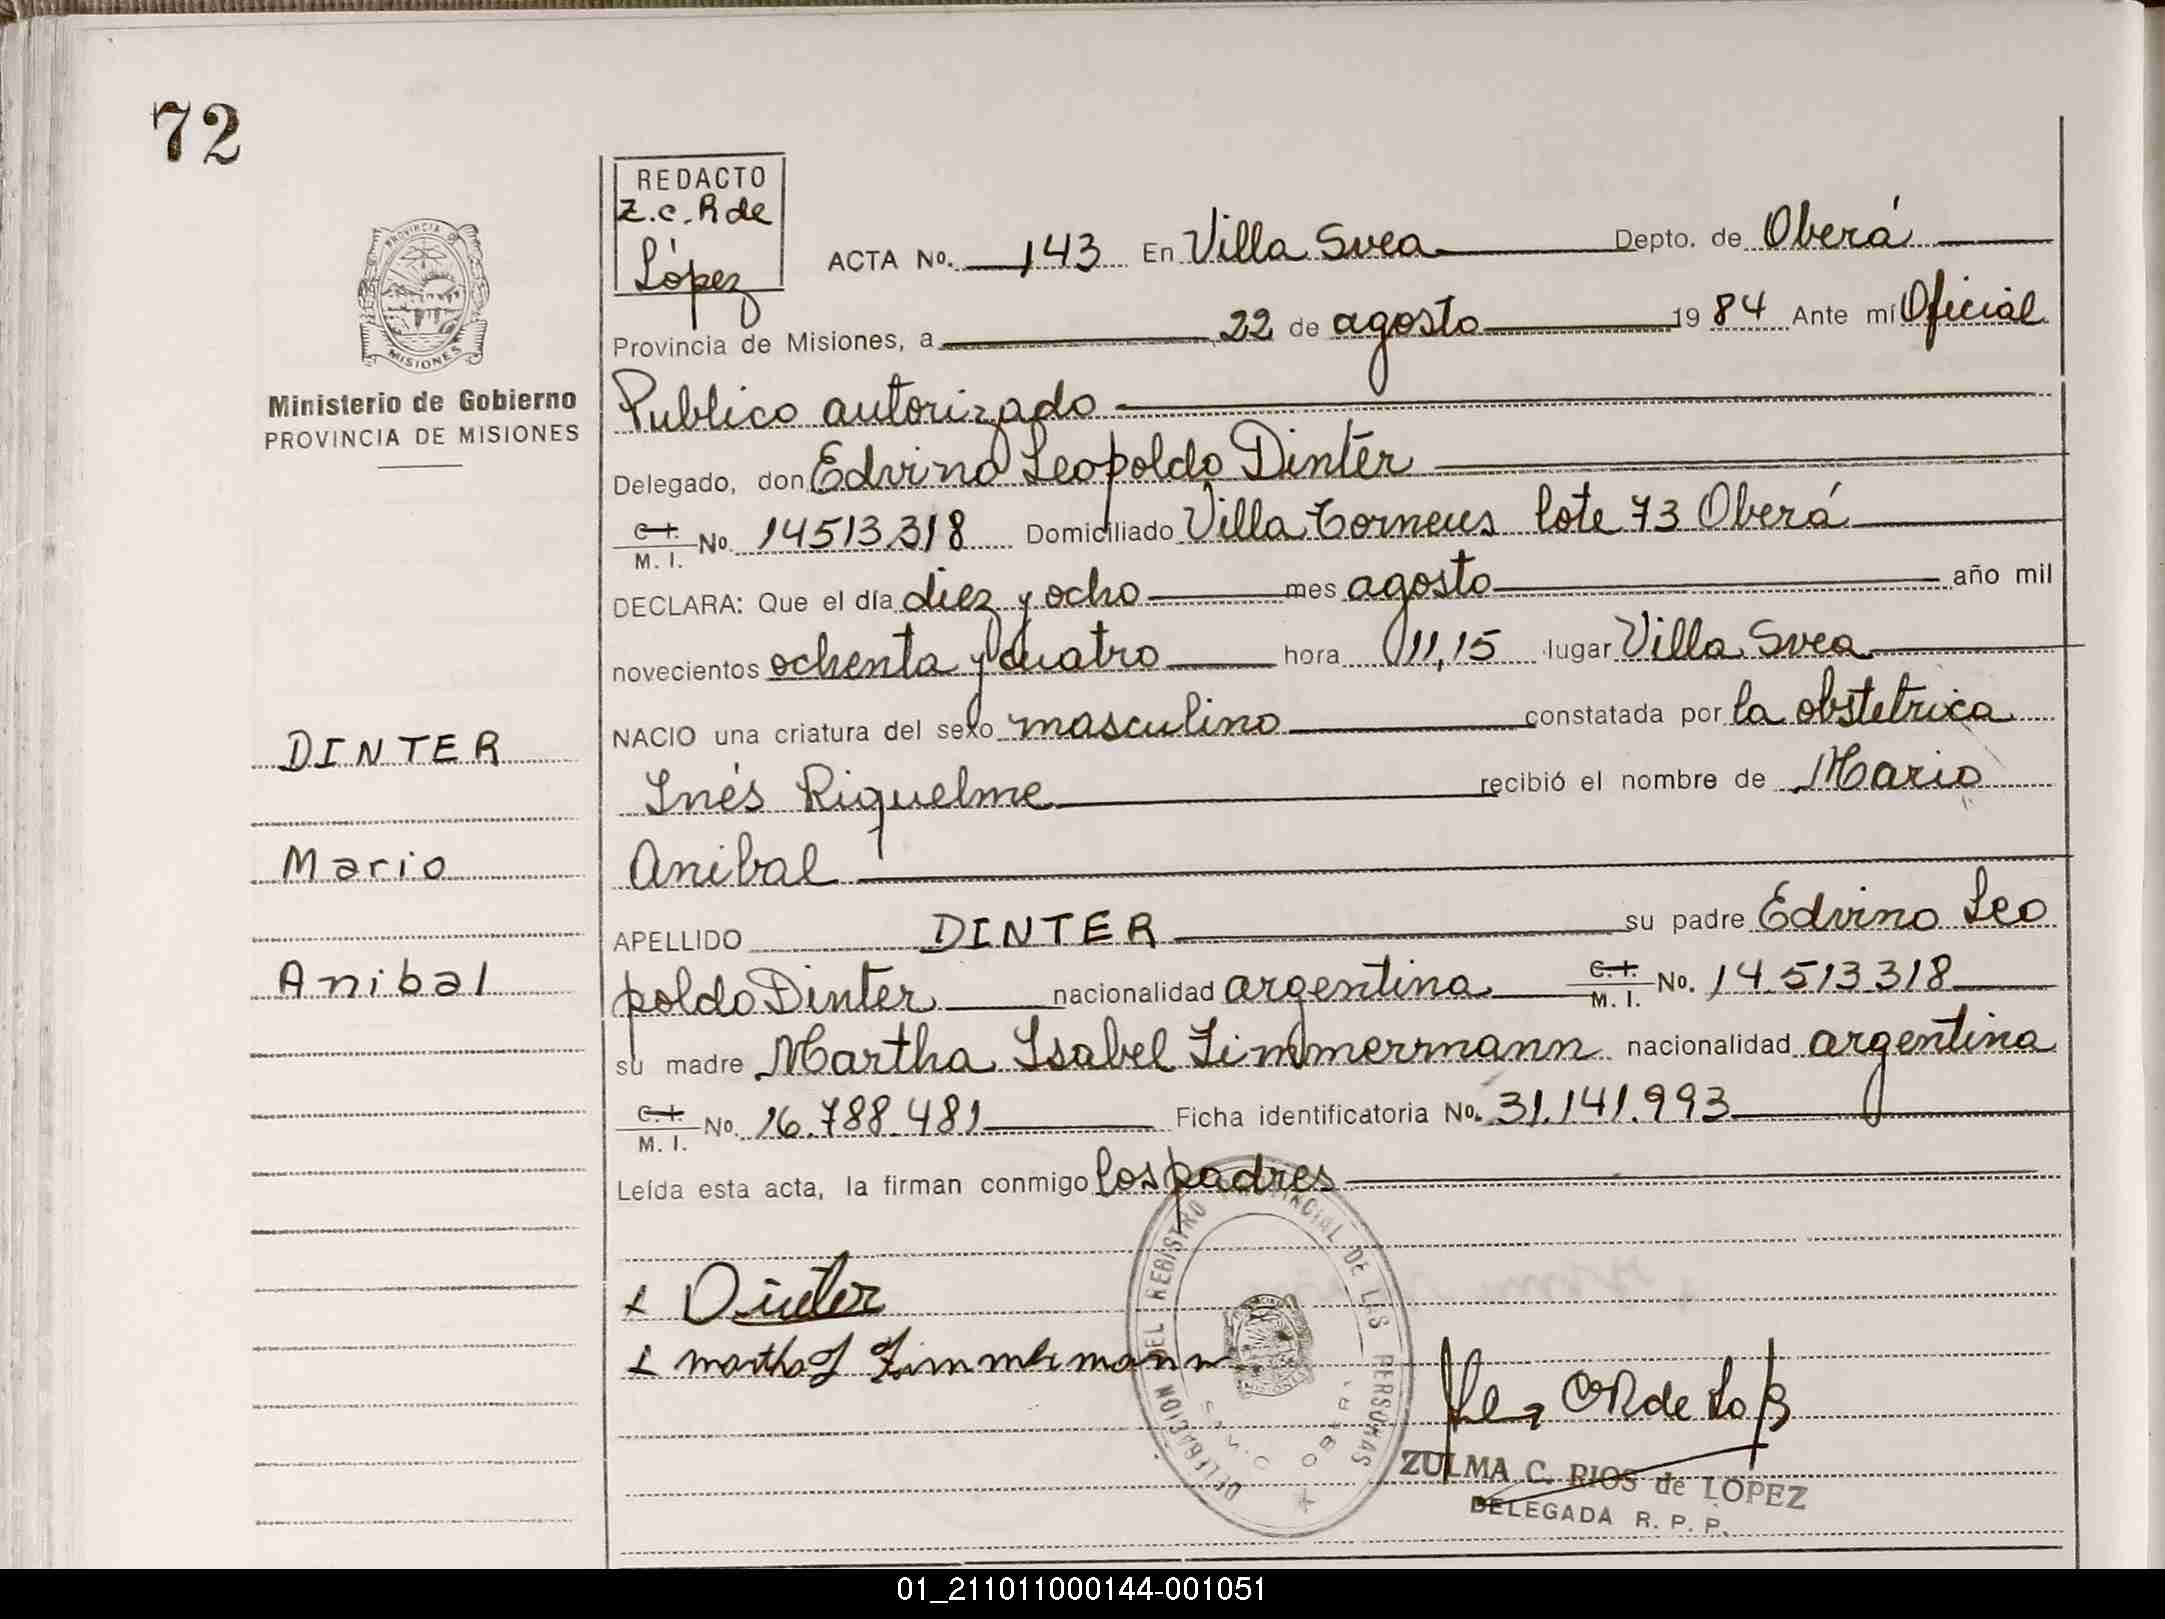 72
REDACTO
Z.C. R de
López
PROVINCIA DE
MISIONES
Ministerio de Gobierno
PROVINCIA DE MISIONES
ACTA No. 143 En Villa Svea Depto. de Oberá
Provincia de Misiones, a 22 de agosto 1984 Ante mí Oficial
Publico autorizado
Delegado, don Edvino Leopoldo Dinter
C.I. M. I. No. 14513318 Domiciliado Villa Torneus lote 73 Oberá
DECLARA: Que el día diez y ocho mes agosto año mil
novecientos ochenta y cuatro hora 11,15 lugar Villa Svea
NACIO una criatura del sexo masculino constatada por la obstetrica
Inés Riquelme recibió el nombre de Mario
Anibal
APELLIDO DINTER su padre Edvino Leo
poldo Dinter nacionalidad argentina C.I. M. I. No. 14.513.318
su madre Martha Isabel Zimmermann nacionalidad argentina
C.I. M. I. No. 16.788.481 Ficha identificatoria No. 31.141.993
Leída esta acta, la firman conmigo los padres
DINTER
Mario
Anibal
x Dinter
x Martha I Zimmermann
DELEGACION DEL REGISTRO PROVINCIAL DE LAS PERSONAS
OBERA
ZULMA C. RIOS de LOPEZ
DELEGADA R. P. P.
01_211011000144-001051